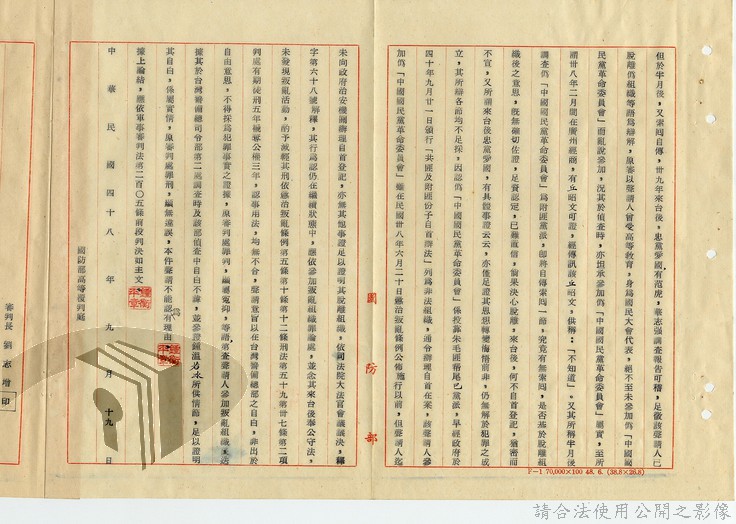 但於半月後，又索囘自傳，卅九年來台後，忠黨愛國，有范虎，華志強調查報告可稽，足徵該聲請人已
脫離偽組織等語為辯解，原審以聲請人曾受高等教育，身為國民大會代表，絕不至未參加偽「中國國
民黨革命委員會」而亂說參加，況其於偵查時，亦坦承參加偽「中國國民黨革命委員會」屬實，至所
謂卅八年二月間在廣州經商，有立昭文可證，經傳訊該立昭文，供稱：「不知道」。又其所稱半月後
調查偽「中國國民黨革命委員會」為附匪黨派，即將自傳索囘一節，究竟有無索囘，是否基於脫離組
織後之意思，既無確切佐證，足資認定，已難置信，倘果決心脫離，來台後，何不自首登記，
不宣，又所謂來台後忠黨愛國，有具體事證云云，亦僅足證其思想轉變悔悟前非，仍無解於犯罪之成
立，其所辯各節均不足採，因認偽「中國國民黨革命委員會」係投靠朱毛匪幫尾巴黨派，早經政府於
四十年九月廿一日頒行「共匪及附匪份子自首辦法」列為非法組織，通令辦理自首在案，該聲請人參
加偽「中國國民黨革命委員會」雖在民國卅八年六月二十日懲治叛亂條例公佈施行以前，但聲請人迄
國防部
未向政府治安機關辦理自首登記，亦無其他事證足以證明其脫離組織，依司法院大法官會議議決，釋
字第六十八號解釋，其行為認仍在繼續狀態中，應依參加叛亂組織罪論處，並念其來台後奉公守法，
未發現叛亂活動，酌予減輕其刑依懲治叛亂條例第五條第十二條刑法第五十九條第卅七條第二項
判處有期徒刑五年褫奪公權三年，認事用法，均無不合，聲請意旨以在台灣警備總部之自白，非出於
自由意思，不得採為犯罪事實之證據，原審判處罪刑，編屬冤抑，等語，第查聲請人參加叛亂組織迭
據其於台灣警備總司令部第二處調查時及該部偵查中自白不諱，並參證鍾溫若水所供情節，足以證明
其自白，係屬實情，原審判處罪刑，編無違誤，本件聲請不能認有理由，
據上論結，應依軍事審判法第二百〇五條前段判決如主文。
中華民國四十八年九月十九日
國防部高等覆判庭
審判長 劉志增 印
F-1 70,000×100 48. 6. (36.8×26.8)
請合法使用公開之影像